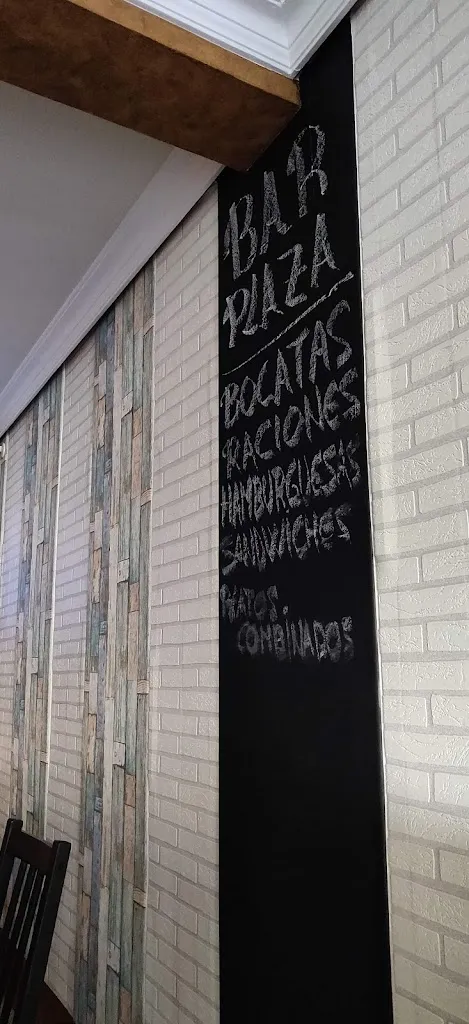 BAR
PLAZA
BOCATAS
RACIONES
HAMBURGUESAS
SANDWICHES
PLATOS
COMBINADOS